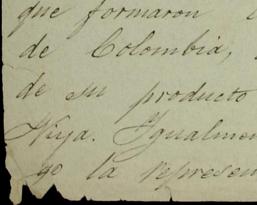 que formaron
de Colombia,
de su producto
Igualmen
go la represen